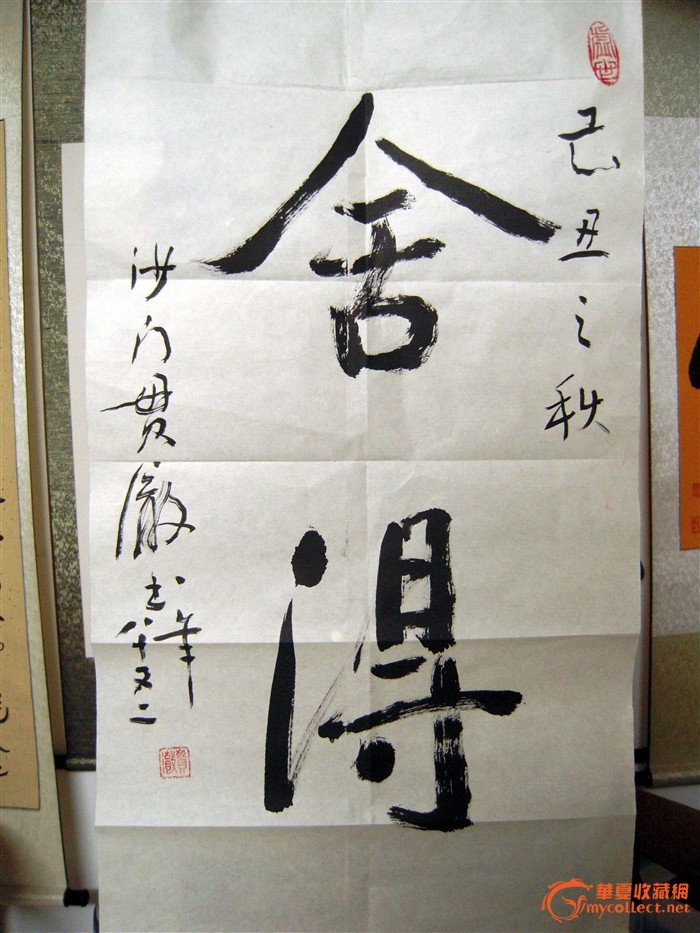 己丑之秋
舍得
沙门贯澈书
年八十又二
華夏收藏網
mycollect.net